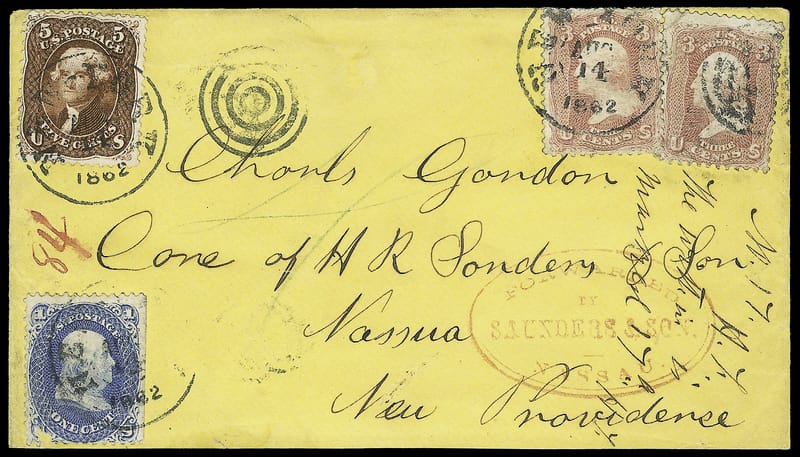 5 5
U.S. POSTAGE
FIVE CENTS
U S
1862
3 3
U.S. POSTAGE
U S
CENTS
AUG
14
1862
3 3
U.S. POSTAGE
U S
THREE
CENTS
Charls Gordon
84
Care of H R Sonders Son
Nassua
New Providence
FORWARDED
BY
SAUNDERS & SON.
NASSAU.
1
U.S. POSTAGE
ONE CENT
U S
1862